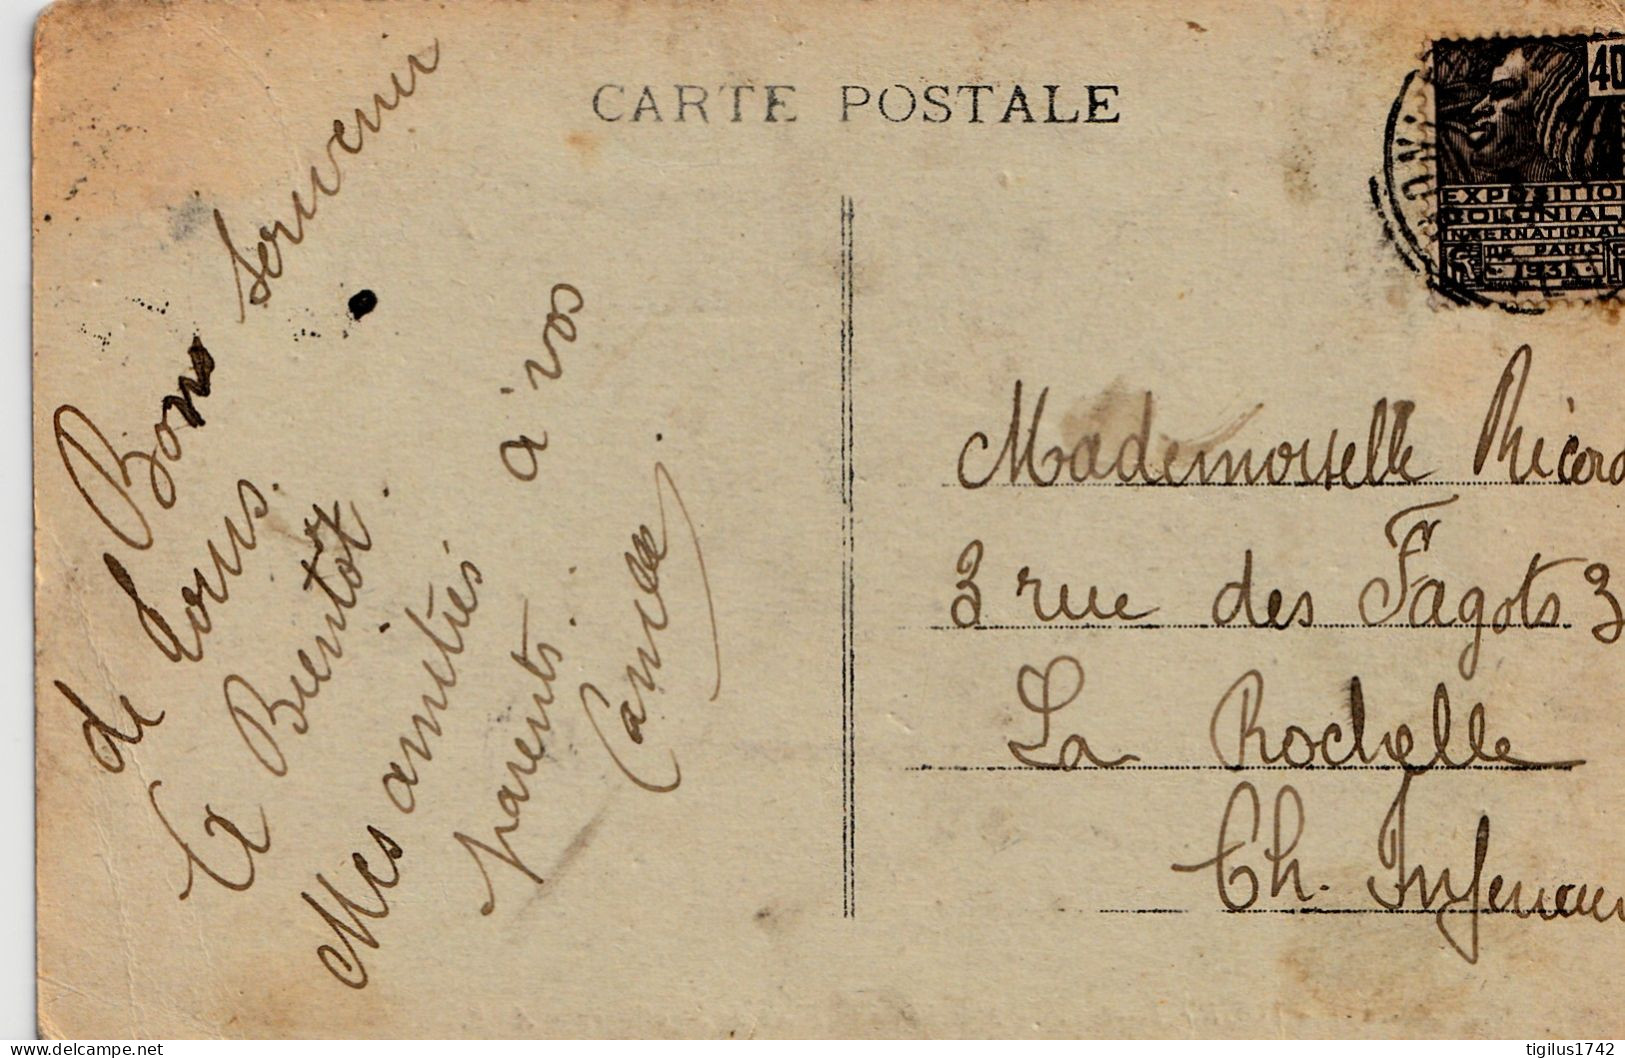 CARTE POSTALE
40
EXPOSITION
COLONIALE
INTERNATIONALE
DE PARIS
1931
Bons Souvenir
de tous.
A Bientôt.
Mes amitiés à vos
parents.
Camille
Mademoiselle Ricord
3 rue des Fagots 3
La Rochelle
Ch. Inferieure
tigilus1742